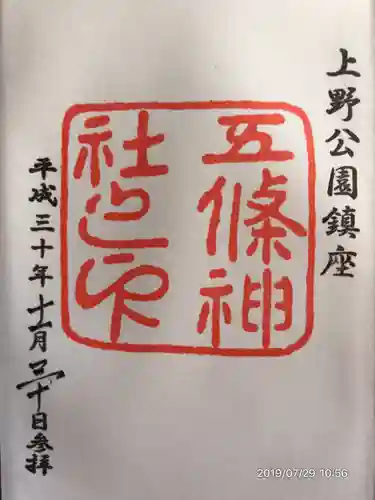 上野公園鎮座
五條神
社之印
平成三十年十一月三十日参拝
2019/07/29 10:56